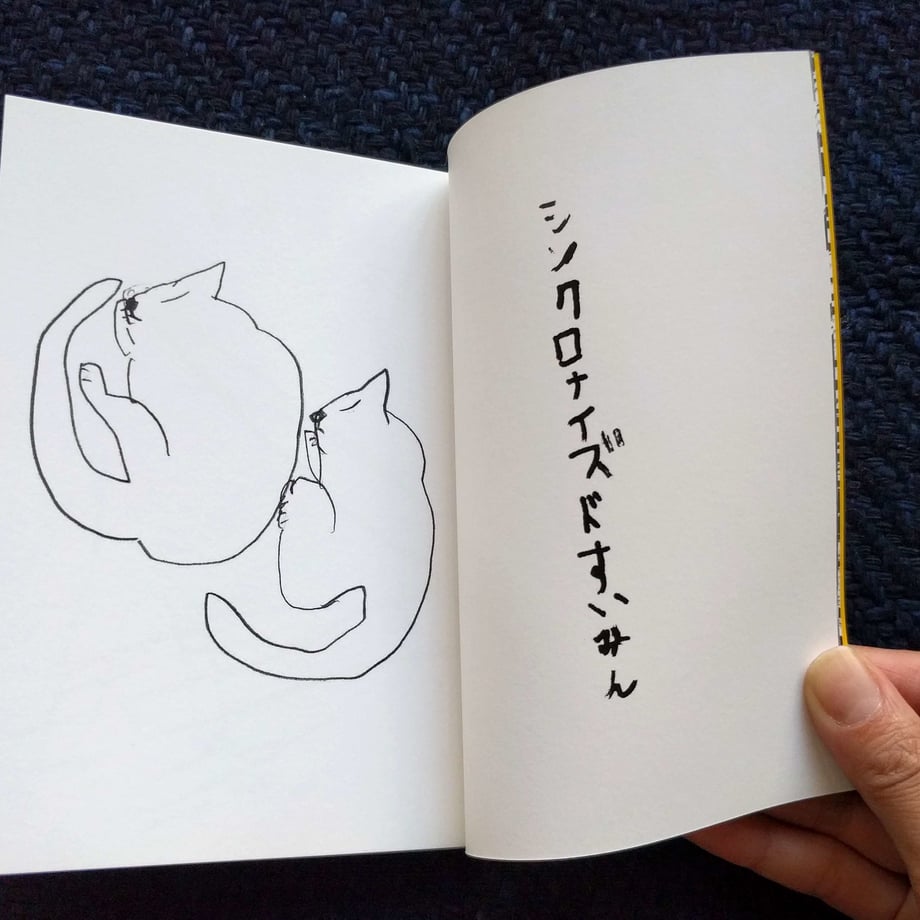 シンクロナイズドすいみん